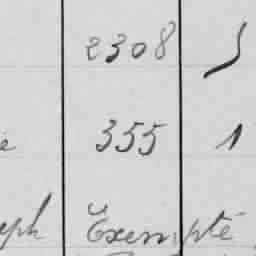 2308
e 355 1
eph Exempté